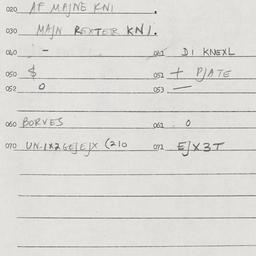 020 AF MAJNE KNI .
030 MAJN REXTER KNI.
040 - 041 DI KNEXL
050 $ 051 + PJATE
052 0 053 -
060 BORVES 061 0
070 UN-1X2GEJEJX (210 071 EJX3T